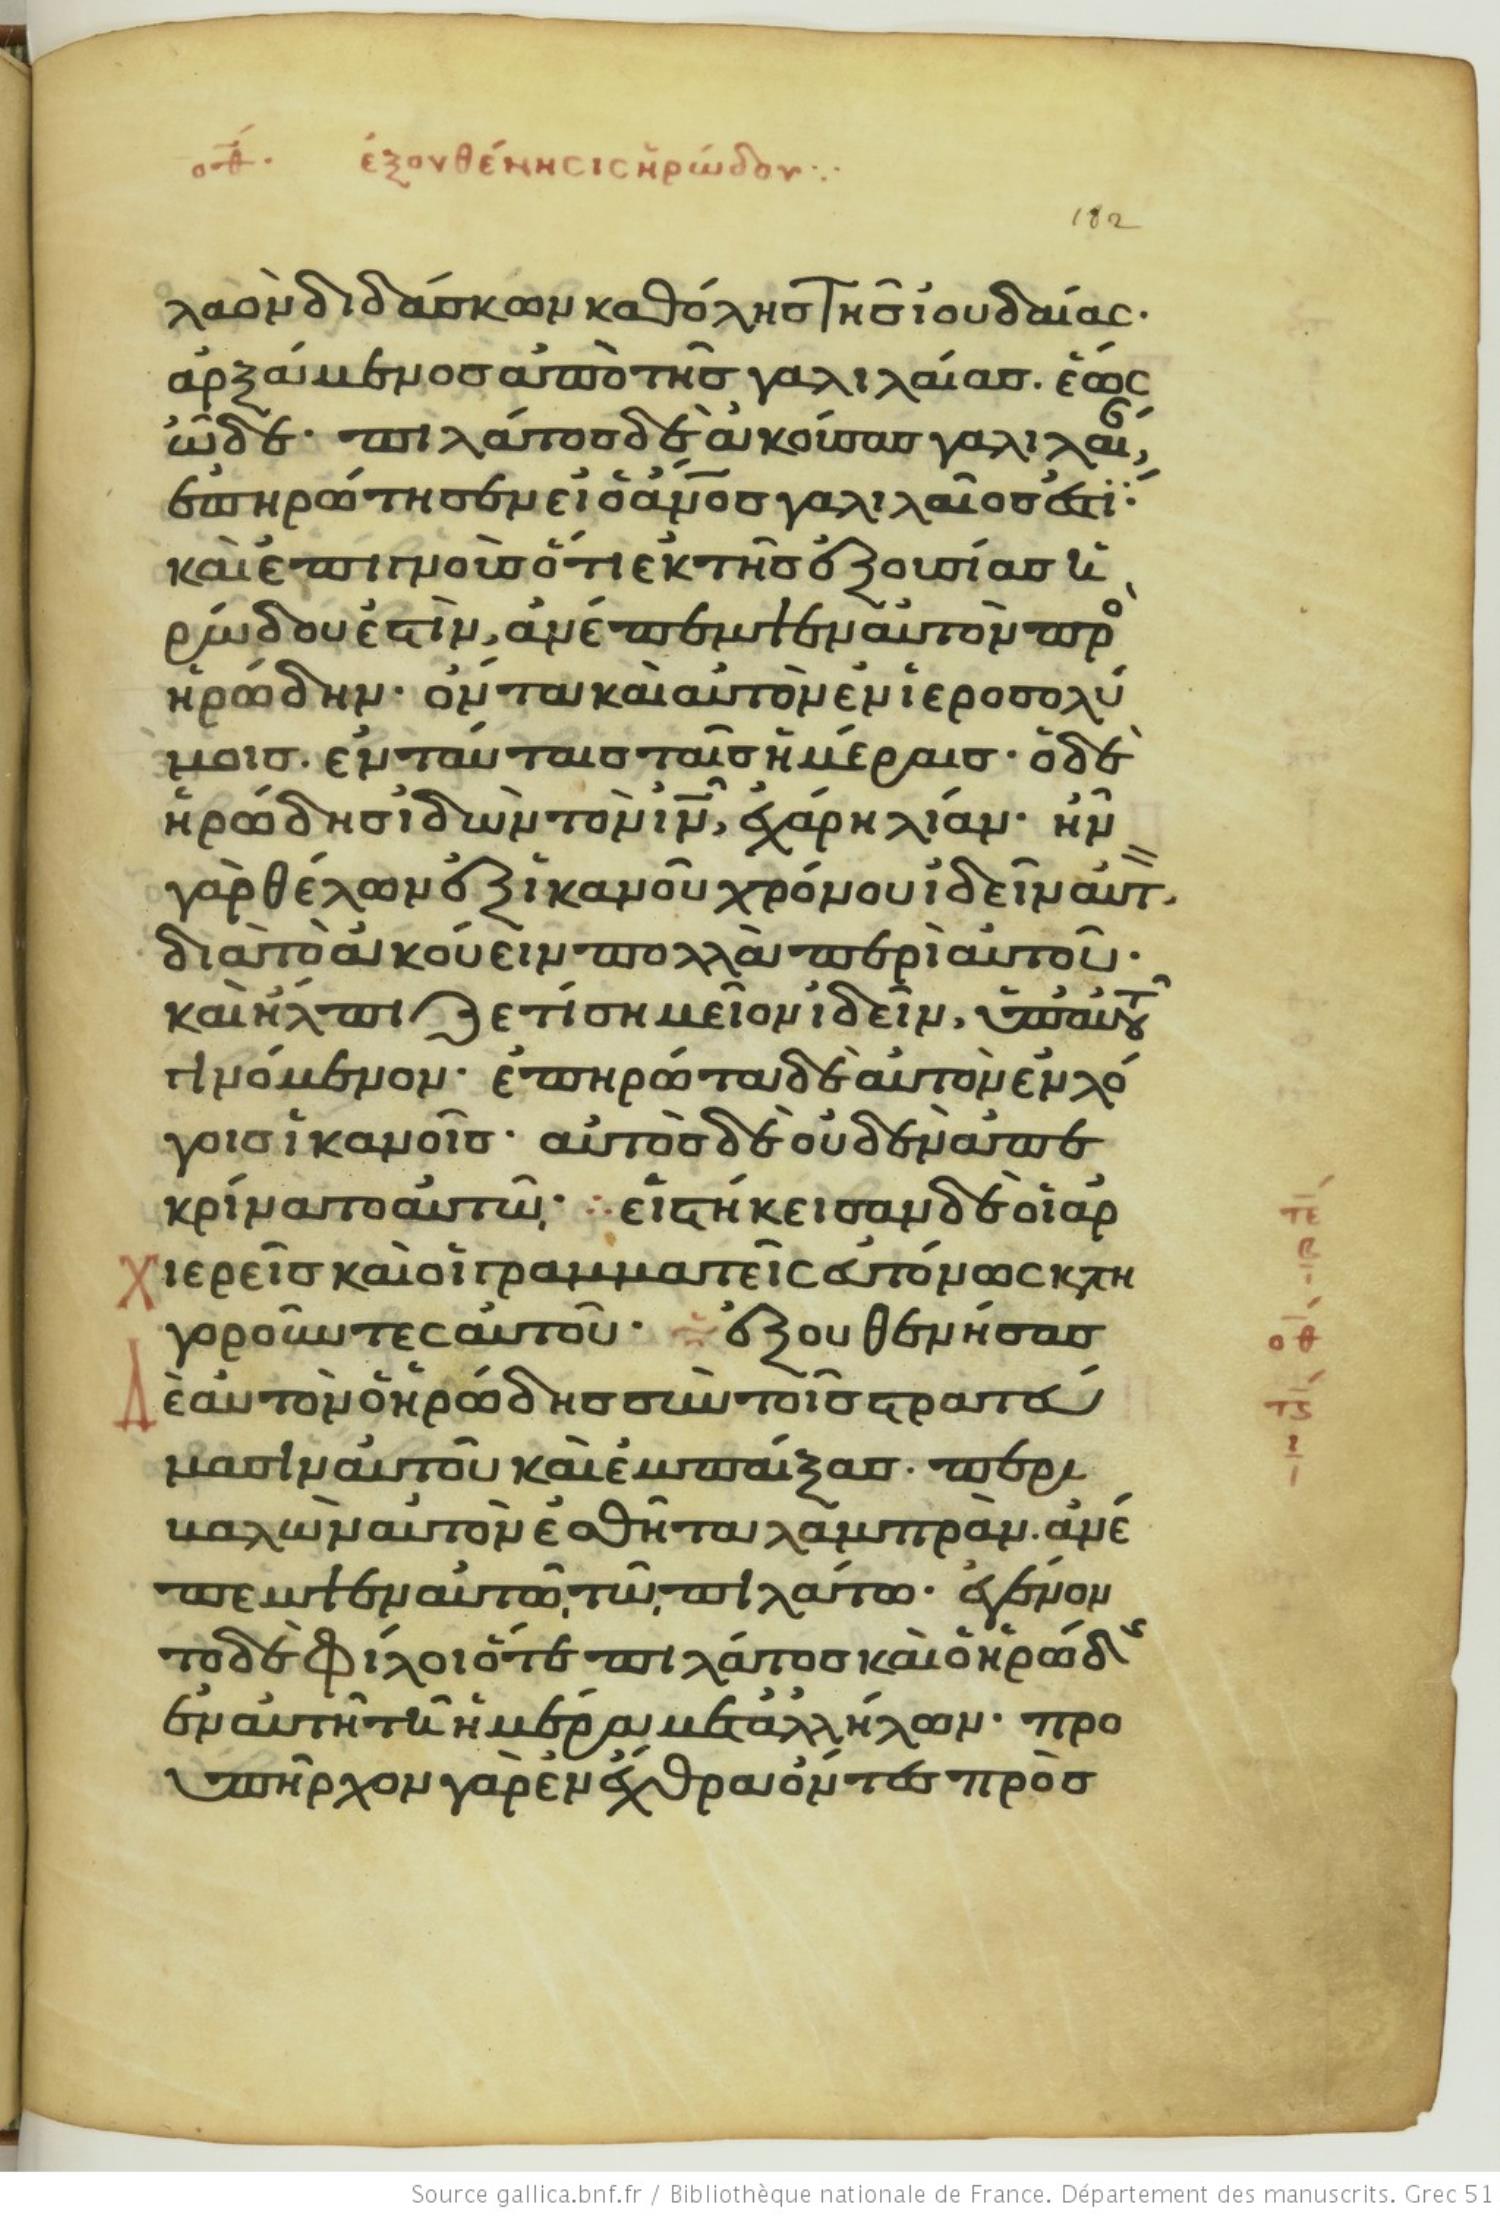 οθ. ἐξουθένησις ἡρώδου
182
λαὸν διδάσκων καθόλης τῆς ἰουδαίας·
ἀρξάμενος ἀπὸ τῆς γαλιλαίας. ἕως
ὧδε· πιλάτος δὲ ἀκούσας γαλιλαί,
ἐπηρώτησεν εἰ ὁ ἄνος γαλιλαῖος ἐστϊ·
καὶ ἐπιγνοὺς ὅτι ἐκ τῆς ἐξουσίας ἡ
ρώδου ἐστὶν, ἀνέπεμψεν αὐτὸν πρὸ
ἡρώδην· ὄντα καὶ αὐτὸν ἐν ἱεροσολύ
μοις. ἐν ταύταις ταῖς ἡμέραις· ὁ δὲ
ἡρώδης ἰδὼν τὸν ἰν, ἐχάρη λίαν· ἦν
γὰρ θέλων ἐξ ἱκανοῦ χρόνου ἰδεῖν αὐτ.
διὰ τὸ ἀκούειν πολλὰ περὶ αὐτοῦ·
καὶ ἤλπιζε τί σημεῖον ἰδεῖν, ὑπ' αὐτοῦ
γινόμενον· ἐπηρώτα δὲ αὐτὸν ἐν λό
γοις ἱκανοῖς· αὐτὸς δὲ οὐδὲν ἀπε
κρίνατο αὐτῶ· εἱστήκεισαν δὲ οἱ ἀρ
χιερεῖς καὶ οἱ γραμματεῖς εὐτόνως κατη
γοροῦντες αὐτοῦ· ἐξουθενήσας
Δὲ αὐτὸν ὁ ἡρώδης σὺν τοῖς στρατεύ
μασιν αὐτοῦ καὶ ἐμπαίξας. περι
βαλὼν αὐτὸν ἐσθῆτα λαμπρὰν. ἀνέ
πεμψεν αὐτὸν, τῶ, πιλάτω. ἐγένον
το δὲ φίλοι ὅτε πιλάτος καὶ ὁ ἡρώδης
ἐν αὐτῆ τῆ ἡμέρα μετ' ἀλλήλων· προ
ϋπῆρχον γὰρ ἐν ἔχθρα ὄντες πρὸς
τε
β
οθ
τς
ι
Source gallica.bnf.fr / Bibliothèque nationale de France. Département des manuscrits. Grec 51